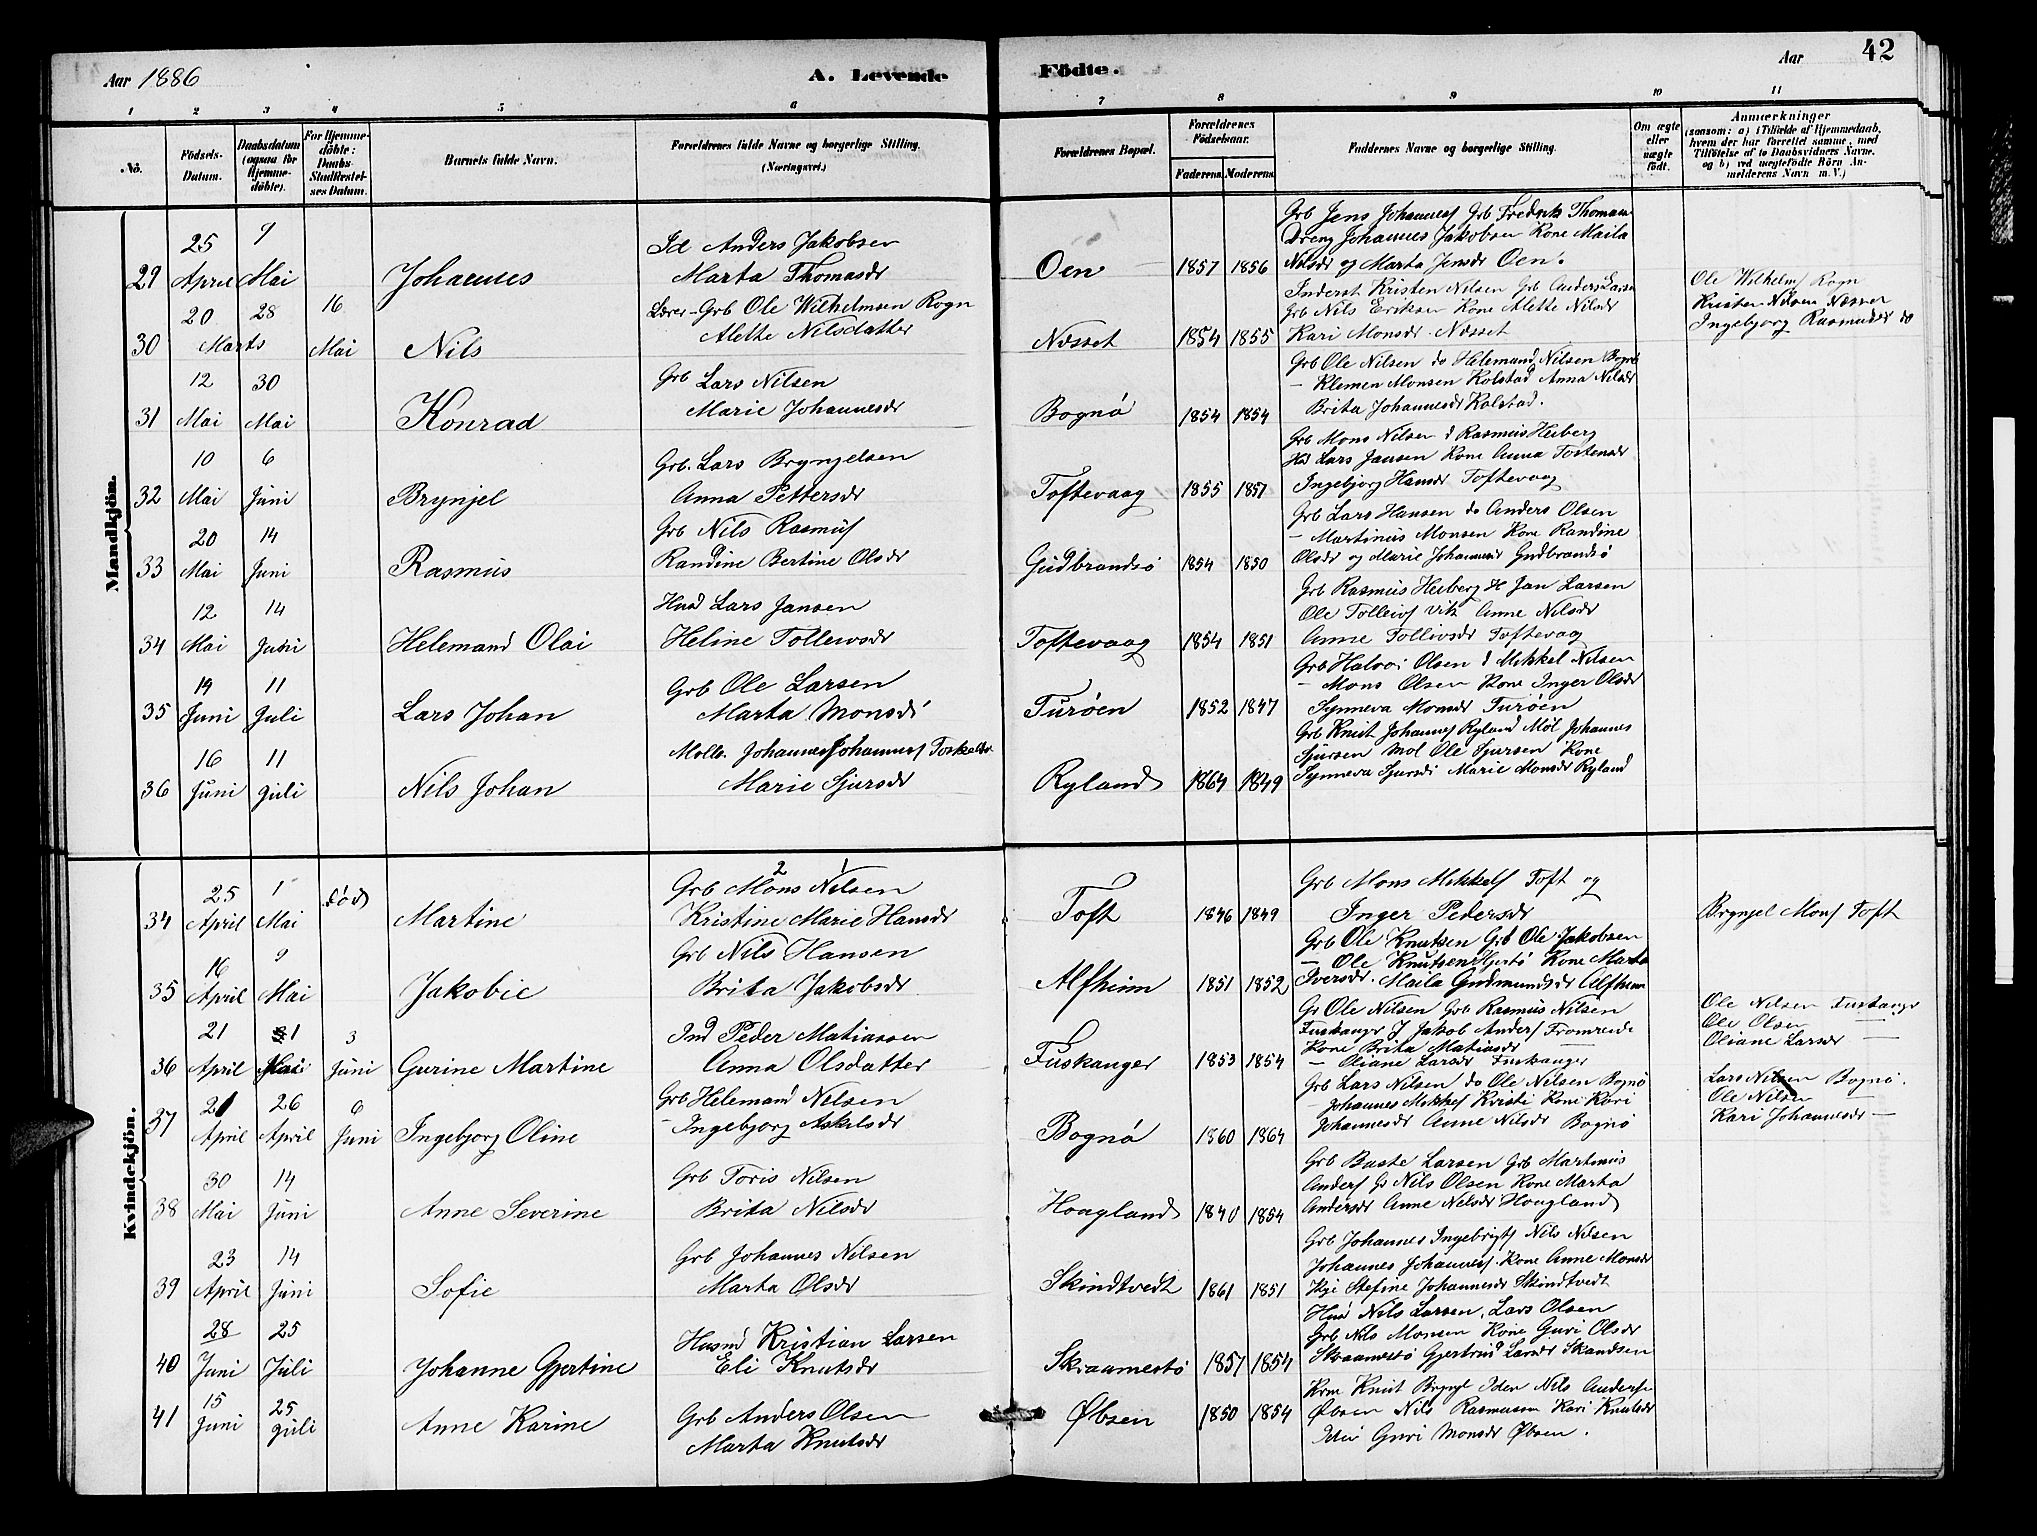 Aar 1886
A. Levende
Födte.
Aar
42
1 2 3 4 5 6 7 8 9 10 11
No.
Födsels-Datum.
Daabsdatum (ogsaa for Hjemmedöbte).
For Hjemmedöbte: Daabs-Stadfæstelses Datum.
Barnets fulde Navn.
Forældrenes fulde Navne og borgerlige Stilling. (Næringsvei.)
Forældrenes Bopæl.
Forældrenes Födselsaar.
Faderens. Moderens.
Faddernes Navne og borgerlige Stilling.
Om ægte eller uægte födt.
Anmærkninger (saasom: a) i Tilfælde af Hjemmedaab, hvem der har forrettet samme, med Tilföielse af to Daabsvidners Navne, og b) ved uægtefödte Börn Anmelderens Navn m. V.)
Mandkjön.
29 25 April 9 Mai Johannes
Anders Jakobsen
Marta Thomasdr
Oen 1857 1856
Grb Jens Johannes Grb Fredrik Thomas
Dreng Johannes Jakobsen Kone Maila
Nilsdr og Marta Jensdr Oen.
30 20 Marts 28 16 Mai Nils
Lærer-Grb Ole Wilhelmsen Rogn
Alette Nilsdatter
Næsset 1854 1855
Inderst Kristen Nilsen Grb Anders Larsen
Grb Nils Eriksen Kone Alette Nilsdr
Kari Monsdr Næsset
Ole Wilhelms Rogn
Kristen Nilsen Næsset
Ingebjorg Rasmusdr do
31 12 Mai 30 Mai Konrad
Grb Lars Nilsen
Marie Johannesdr
Bognö 1854 1854
Grb Ole Nilsen do Helemand Nilsen Bognö
– Klemen Monsen Kolstad Anna Nilsdr
Brita Johannesdr Kolstad.
32 10 Mai 6 Juni Brynjel
Grb. Lars Brynjelsen
Anna Pettersdr
Toftevaag 1855 1857
Grb Mons Nilsen d Rasmus Heiberg
Lars Jansen Kone Anna Tostensdr
Ingebjorg Hansdr Toftevaag
33 20 Mai 14 Juni Rasmus
Grb Nils Rasmus
Randine Bertine Olsdr
Gudbrandsö 1854 1850
Grb Lars Hansen do Anders Olsen
– Martinus Monsen Kone Randine
Olsdr og Marie Johannesdr Gudbrandsö
34 12 Mai 14 Juni Helemand Olai
Husd Lars Jansen
Heline Tolleivsdr
Toftevaag 1854 1851
Grb Rasmus Heiberg H Jan Larsen
Ole Tolleivs Vik Anne Nilsdr
Anne Tollivsdr Toftevaag
35 19 Juni 11 Juli Lars Johan
Grb Ole Larsen
Marta Monsdr
Turöen 1852 1847
Grb Halvor Olsen d Mikkel Nilsen
– Mons Olsen Kone Inger Olsdr
Synneva Monsdr Turöen
36 16 Juni 11 Juli Nils Johan
Johannes Johannes
Marie Sjursdr
Ryland 1864 1849
Grb Knut Johannes Ryland Möl Johannes
Sjursen Möl Ole Sjursen Kone
Synneva Sjursdr Marie Monsdr Ryland
Kvindekjön.
34 25 April 1 Mai död Martine
2 1
Grb Mons Nilsen
Kristine Marie Hansdr
Toft 1846 1849
Grb Mons Mikkels Toft og
Inger Pedersdr
Brynjel Mons Toft
35 16 April 9 Mai Jakobie
Grb Nils Hansen
Brita Jakobsdr
Alfheim 1851 1852
Grb Ole Knutsen Grb Ole Jakobsen
– Ole Knutsen Hjertö Kone Marta
Iversdr. Maila Gudmundsdr Alfheim
36 21 April 1 Mai 3 Juni Gurine Martine
Ind Peder Matiassen
Anna Olsdatter
Fuskanger 1853 1854
G Ole Nilsen Grb Rasmus Nilsen
Fuskanger J Jakob Anders Fromreide
Kone Brita Matiasdr –
– Oliane Larsdr Fuskanger
Ole Nilsen Fuskanger
Ole Olsen
Oliane Larsdr –
37 21 April 26 April 6 Juni Ingebjorg Oline
Grb Helemand Nilsen
– Ingebjorg Askelsdr
Bognö 1860 1864
Grb Lars Nilsen do Ole Nilsen Bognö
– Johannes Mikkels Kone Kari
Johannesdr Anne Nilsdr Bognö
Lars Nilsen Bognö.
Ole Nilsen –
Kari Johannesdr –
38 30 Mai 14 Juni Anne Severine
Grb Toris Nilsen
Brita Nilsdr
Hoagland 1840 1854
Grb Baste Larsen Grb Martinus
Anders G Nils Olsen Kone Marta
Andersdr Anne Nilsdr Hoagland
39 23 April 14 Juni Sofie
Grb Johannes Nilsen
Marta Olsdr
Skindtvedt 1861 1851
Grb Johannes Ingebrigts Nils Nilsen
Johannes Johannes. Kone Anne Monsdr
Stefine Johannesdr Skindtvedt
40 28 Juni 25 Juli Johanne Gjertine
Husmd Kristian Larsen
Eli Knutsdr
Skaamestö 1857 1854
Husd Nils Larsen, Lars Olsen
Grb Nils Monsen Kone Guri Olsdr
Skaamestö Gjertrud Larsdr
41 15 Juni 25 Juli Anne Karine
Grb Anders Olsen
Marta Knutsdr
Øbsen 1850 1854
Knut Nils Anders
Øbsen Nils Rasmusen Kari Knutsdr
Guri Monsdr Øbsen.